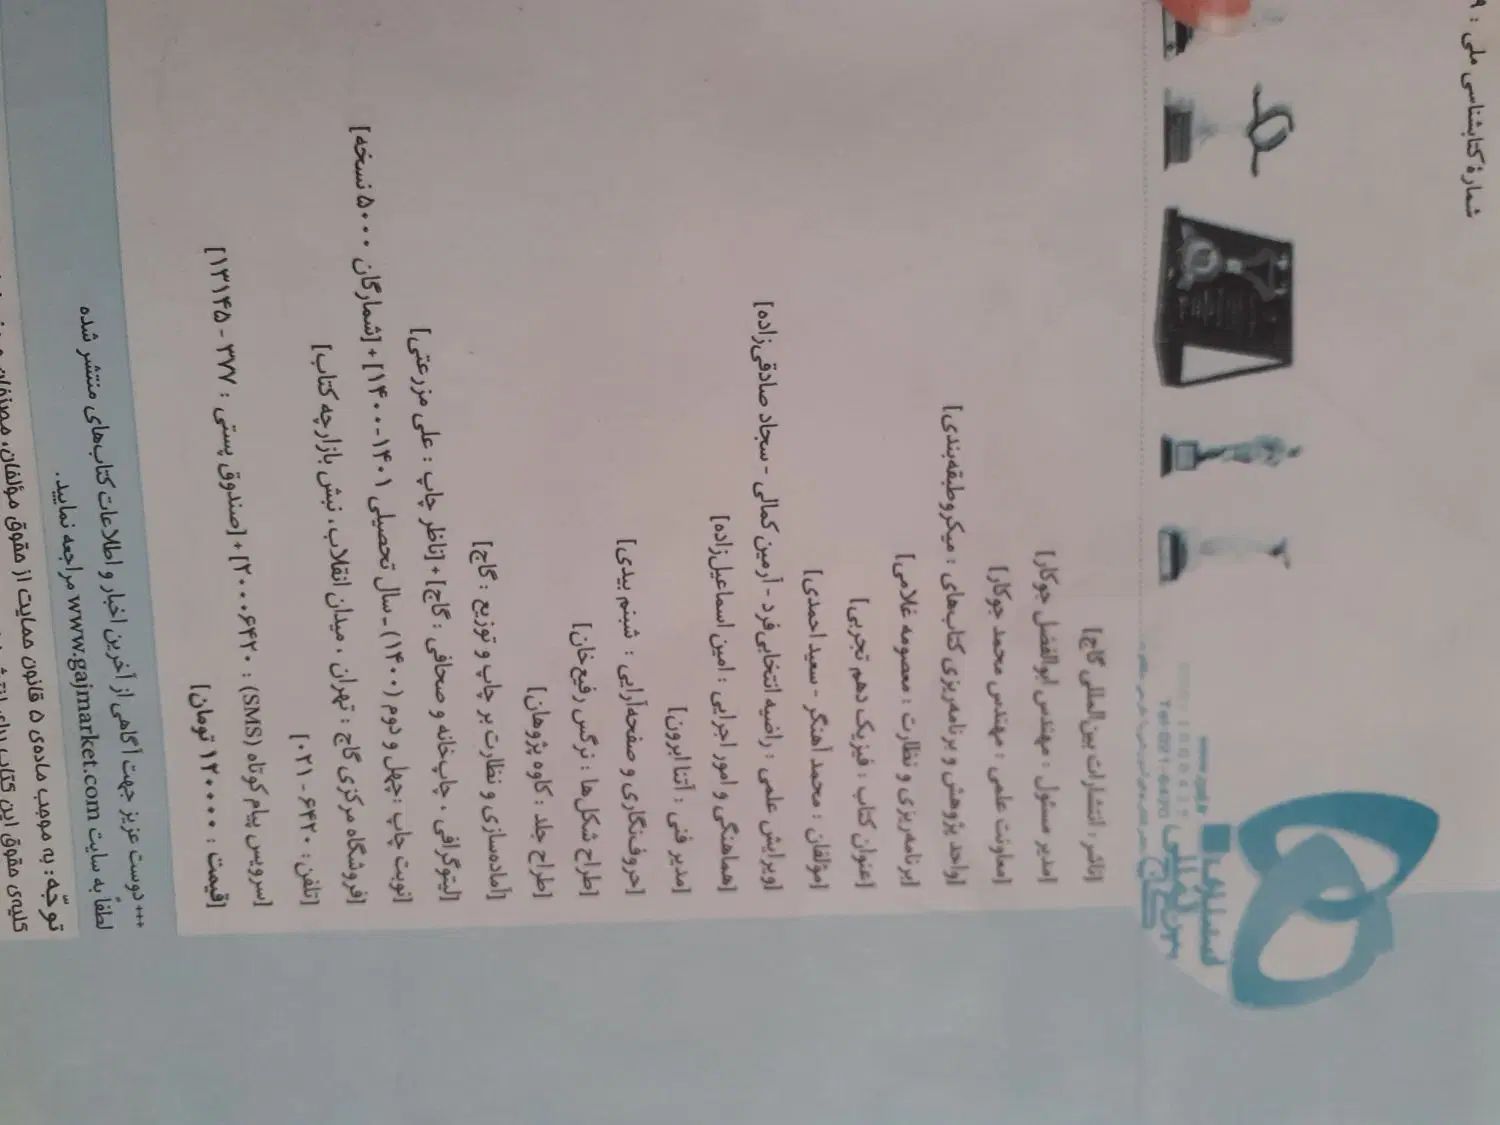 شمارهٔ کتابشناسی ملی : ۹
انتشارات
بین‌المللی
گاج
[ناشر : انتشارات بین‌المللی گاج]
[مدیر مسئول : مهندس ابوالفضل جوکار]
[معاونت علمی : مهندس محمد جوکار]
[واحد پژوهش و برنامه‌ریزی کتاب‌های : میکروطبقه‌بندی]
[برنامه‌ریزی و نظارت : معصومه غلامی]
[عنوان کتاب : فیزیک دهم تجربی]
[مؤلفان : محمد آهنگر - سعید احمدی]
[ویرایش علمی : راضیه انتخابی‌فرد - آرمین کمالی - سجاد صادقی‌زاده]
[هماهنگی و امور اجرایی : امین اسماعیل‌زاده]
[مدیر فنی : آتنا ابرون]
[حروف‌نگاری و صفحه‌آرایی : شبنم بیدی]
[طراح شکل‌ها : نرگس رفیع‌خان]
[طراح جلد : کاوه پژوهان]
[آماده‌سازی و نظارت بر چاپ و توزیع : گاج]
[لیتوگرافی ، چاپ‌خانه و صحافی : گاج] + [ناظر چاپ : علی مزرعتی]
[نوبت چاپ : چهل و دوم (۱۴۰۰) - سال تحصیلی ۱۴۰۱-۱۴۰۰] + [شمارگان ۵۰۰۰ نسخه]
[فروشگاه مرکزی گاج : تهران ، میدان انقلاب ، نبش بازارچه کتاب]
[تلفن: ۶۴۲۰ - ۰۲۱]
[سرویس پیام کوتاه (SMS) : ۲۰۰۰۶۴۲۰] + [صندوق پستی : ۳۷۷ - ۱۳۱۴۵]
[قیمت : ۱۲۰۰۰۰ تومان]
+++ دوست عزیز جهت آگاهی از آخرین اخبار و اطلاعات کتاب‌های منتشر شده
لطفاً به سایت www.gajmarket.com مراجعه نمایید.
توجّه : به موجب ماده‌ی ۵ قانون حمایت از حقوق مؤلفان، مصنفان و
کلیه‌ی حقوق این کتاب برای